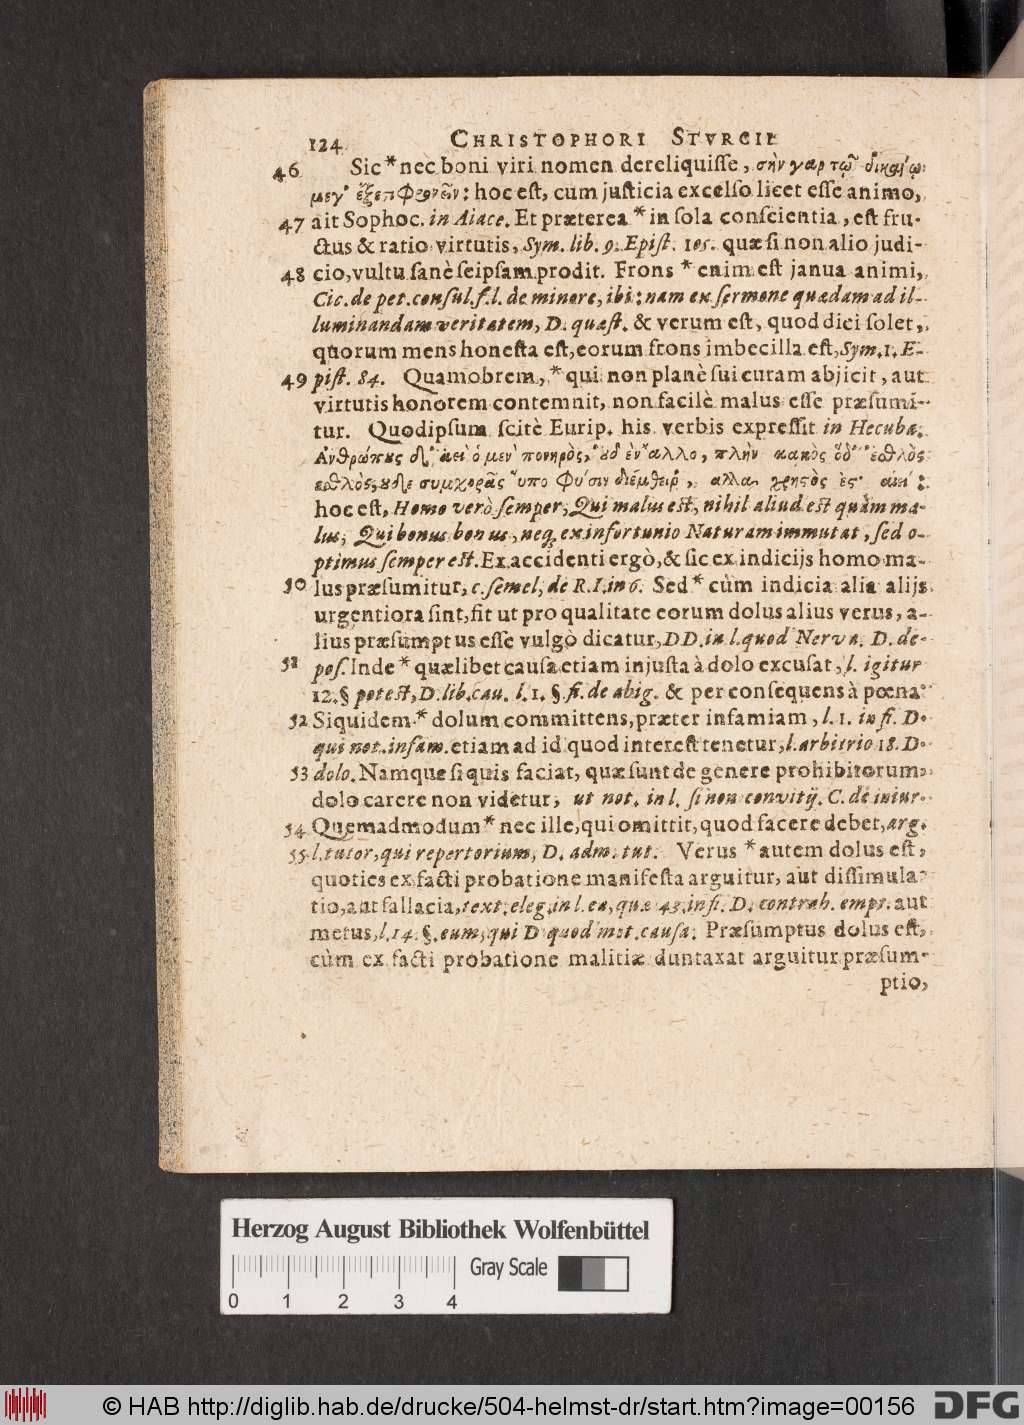 124 CHRISTOPHORI STVRCII
46 Sic * nec boni viri nomen dereliquisse, σὴν γαρ τῷ δικαίῳ
μεγ' hoc est, cum justicia excelso licet esse animo,
47 ait Sophoc. in Aiace. Et præterea * in sola conscientia, est fru-
ctus & ratio virtutis, Sym. lib. 9. Epist. 105. quæ si non alio judi-
48 cio, vultu sanè seipsam prodit. Frons * enim est janua animi,
Cic. de pet. consul. f. l. de minore, ibi: nam ex sermone quædam ad il-
luminandam veritatem, D. quæst. & verum est, quod dici solet,
quorum mens honesta est, eorum frons imbecilla est, Sym. 1. E-
49 pist. 84. Quamobrem, * qui non planè sui curam abjicit, aut
virtutis honorem contemnit, non facilè malus esse præsumi-
tur. Quod ipsum scitè Eurip. his verbis expressit in Hecuba.
Ανθρώποις δ' αεὶ ὁ μεν πονηρὸς, ουδ εν ἄλλο, πλὴν κακὸς ὁδ' ἐσθλὸς
εσθλὸς, ουδε συμφορᾶς ὑπο φύσιν διέφθειρ', αλλα χρηστὸς ες' αεὶ:
hoc est, Homo verò semper, Qui malus est, nihil aliud est quàm ma-
lus, Qui bonus bonus, neq; ex infortunio Naturam immutat, sed o-
ptimus semper est. Ex accidenti ergò, & sic ex indicijs homo ma-
50 lus præsumitur, c. semel, de R. I. in 6. Sed * cùm indicia alia alijs
urgentiora sint, fit ut pro qualitate eorum dolus alius verus, a-
lius præsumptus esse vulgò dicatur, DD. in l. quod Nerva. D. de-
51 pos. Inde * quælibet causa etiam injusta à dolo excusat, l. igitur
12. § potest, D. lib. cau. l. 1. §. fi. de abig. & per consequens à pœna.
52 Siquidem * dolum committens, præter infamiam, l. 1. in fi. D.
qui not. infam. etiam ad id quod interest tenetur, l. arbitrio 18. D.
53 dolo. Namque si quis faciat, quæ sunt de genere prohibitorum,
dolo carere non videtur, ut not. in l. si non convitij. C. de iniur.
54 Quemadmodum * nec ille, qui omittit, quod facere debet, arg.
55 l. tutor, qui repertorium, D. adm. tut. Verus * autem dolus est,
quoties ex facti probatione manifesta arguitur, aut dissimula-
tio, aut fallacia, text. eleg. in l. ea, quæ 43. in fi. D. contrah. empt. aut
metus, l. 14. §. eum, qui D quod met. causa. Præsumptus dolus est,
cùm ex facti probatione malitiæ duntaxat arguitur præsum-
ptio,
Herzog August Bibliothek Wolfenbüttel
Gray Scale
0 1 2 3 4
© HAB http://diglib.hab.de/drucke/504-helmst-dr/start.htm?image=00156
DFG